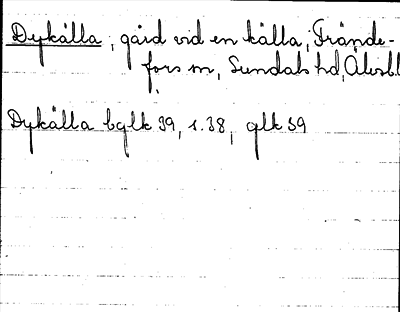 Dykälla, gård vid en källa, Frände-
fors sn, Sundals hd, Älvsbl
Dykälla bglk 39, s. 38, glk 59